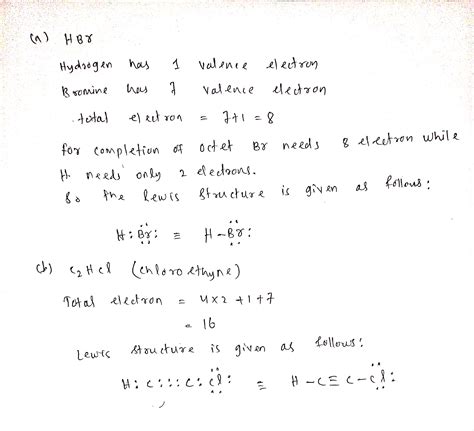 (a) HBr
Hydrogen has 1 valence electron
Bromine has 7 valence electron
total electron = 7+1 = 8
for completion of octet Br needs 8 electron while
H needs only 2 electrons.
So the lewis structure is given as follows:
H:Br: ≡ H–Br:
(b) C2HCl (chloroethyne)
Total electron = 4×2+1+7
= 16
Lewis structure is given as follows:
H:C:::C:Cl: ≡ H–C≡C–Cl: